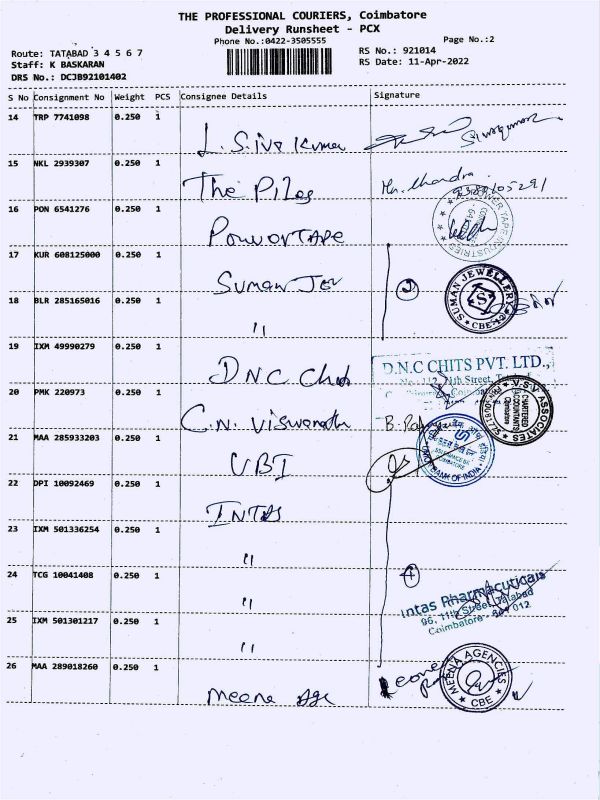 THE PROFESSIONAL COURIERS, Coimbatore
Delivery Runsheet - PCX
Phone No.:0422-3505555 Page No.:2
Route: TATABAD 3 4 5 6 7 RS No.: 921014
Staff: K BASKARAN RS Date: 11-Apr-2022
DRS No.: DCJB92101402
S No Consignment No Weight PCS Consignee Details Signature
14 TRP 7741098 0.250 1
L. Siva Kumar Sivakumar
15 NKL 2939307 0.250 1
The Pilos
16 PON 6541276 0.250 1
PowerTAPE
POWER TAPE INDUSTRIES
17 KUR 608125000 0.250 1
Suman Jew 2
SUMAN JEWELLERY
S
CBE-12
18 BLR 285165016 0.250 1
"
19 IXM 49990279 0.250 1
DNC Chits
D.N.C CHITS PVT. LTD.,
No: 112, 11th Street,
20 PMK 220973 0.250 1
C.N. Viswanath B.
V.S.V ASSOCIATES
CHARTERED
ACCOUNTANTS
21 MAA 285933203 0.250 1
UBI
UNION BANK OF INDIA
22 DPI 10092469 0.250 1
INTAS
23 IXM 501336254 0.250 1
"
24 TCG 10041408 0.250 1
" 4
Intas Pharmaceuticals
96, 11th Street, Tatabad
Coimbatore - 641 012
25 IXM 501301217 0.250 1
"
26 MAA 289018260 0.250 1
Meena Age
MEENA AGENCIES
CBE